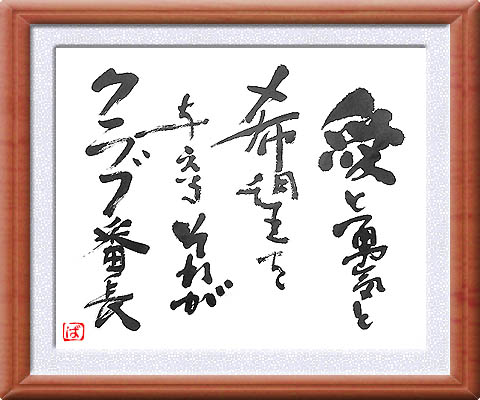 愛と勇気と
希望を
与える それが
クラブ番長
ぱ